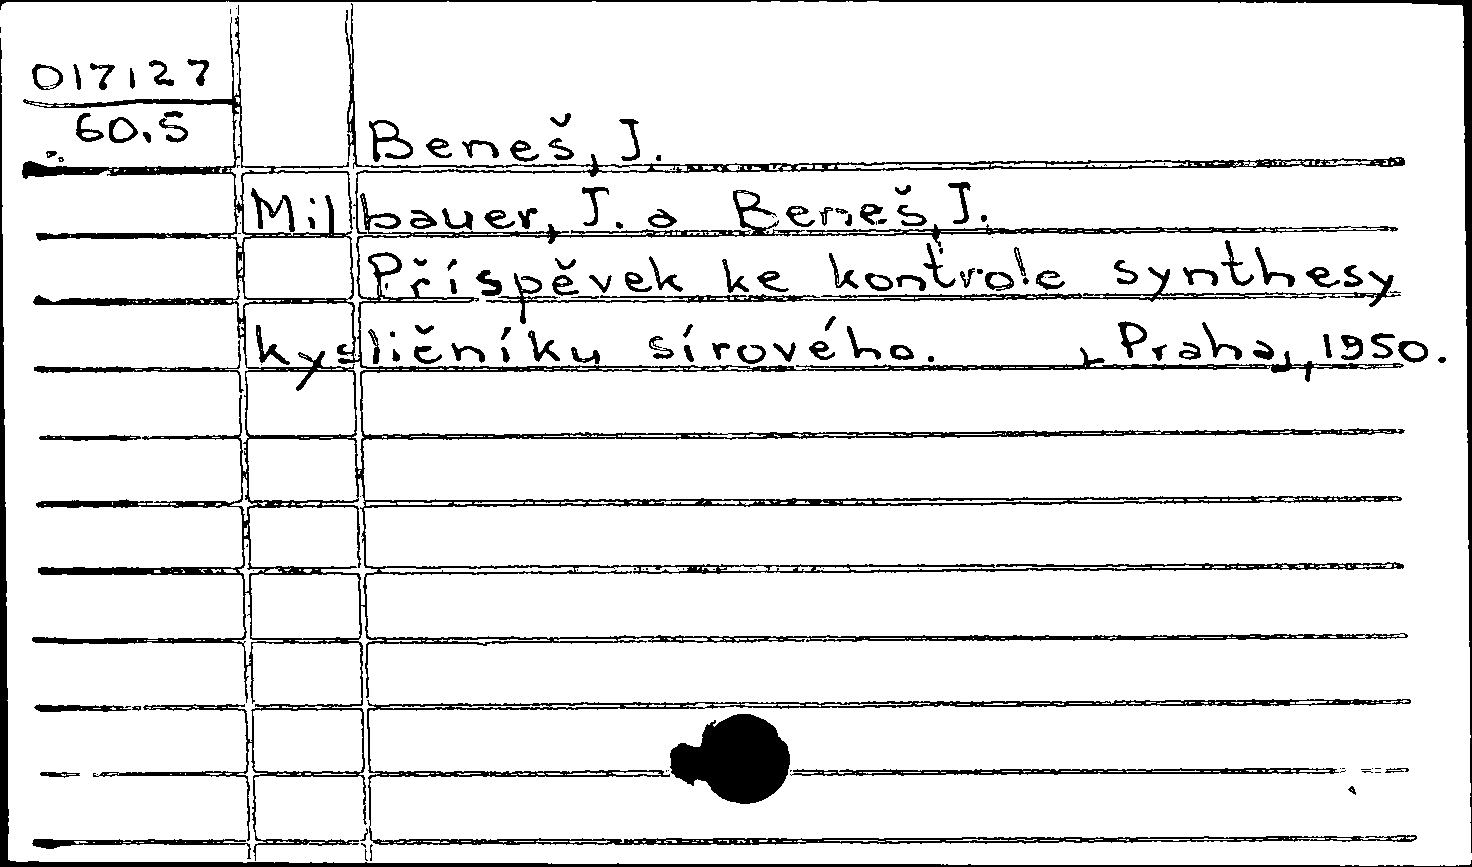 017127
60.5
Beneš, J.
Milbauer, J. a Beneš, J.
Příspěvek ke kontrole synthesy
kysličníku sírového. [Praha], 1950.